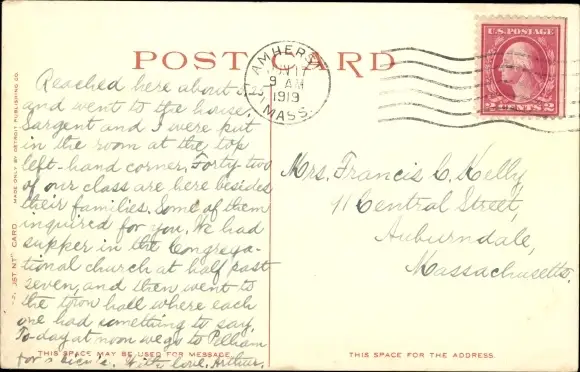 POST CARD
AMHERST
JUN 17
9 AM
1919
MASS.
U.S. POSTAGE
2 CENTS 2
MADE ONLY BY DETROIT PUBLISHING CO.
Reached here about
and went to the house.
Sargent and I were put
in the room at the top
left-hand corner. Forty-two
of our class are here besides
their families. Some of them
inquired for you. We had
supper in the Congrega-
tional church at half past
seven, and then went to
the town hall where each
one had something to say.
To-day at noon we go to Pelham
for a With love, Arthur.
THIS SPACE MAY BE USED FOR MESSAGE.
Mrs. Francis C. Kelly,
11 Central Street,
Auburndale,
Massachusetts.
THIS SPACE FOR THE ADDRESS.